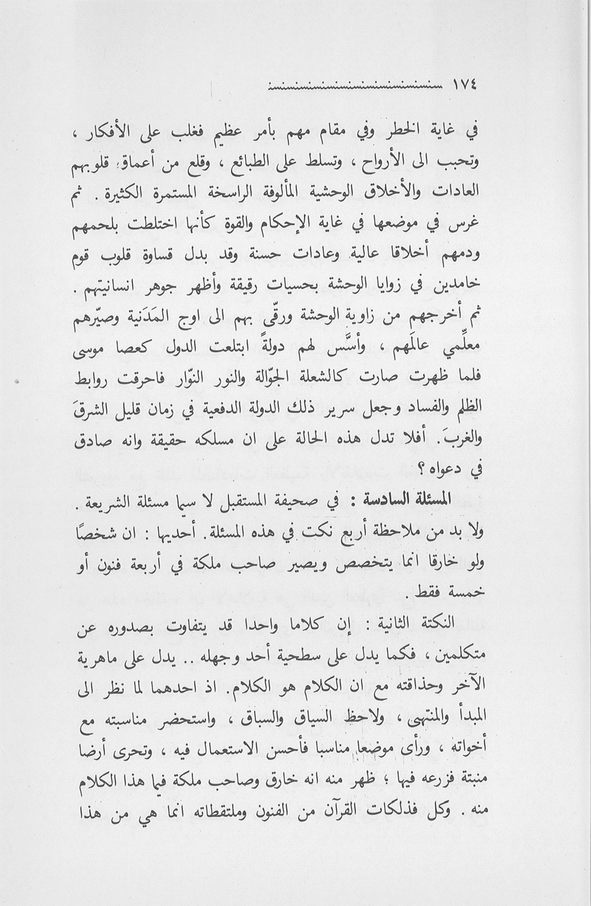 ١٧٤
في غاية الخطر وفي مقام مهم بأمر عظيم فغلب على الأفكار ،
وتحبب الى الأرواح ، وتسلط على الطبائع ، وقلع من أعماق قلوبهم
العادات والأخلاق الوحشية المألوفة الراسخة المستمرة الكثيرة . ثم
غرس في موضعها في غاية الإحكام والقوة كأنها اختلطت بلحمهم
ودمهم أخلاقا عالية وعادات حسنة وقد بدل قساوة قلوب قوم
خامدين في زوايا الوحشة بحسيات رقيقة وأظهر جوهر انسانيتهم .
ثم أخرجهم من زاوية الوحشة ورقّى بهم الى اوج المَدَنية وصيّرهم
معلِّمي عالَمهم ، وأسَّس لهم دولةً ابتلعت الدول كعصا موسى
فلما ظهرت صارت كالشعلة الجوّالة والنور النوّار فاحرقت روابط
الظلم والفساد وجعل سرير ذلك الدولة الدفعية في زمان قليل الشرقَ
والغربَ. أفلا تدل هذه الحالة على ان مسلكه حقيقة وانه صادق
في دعواه ؟
المسئلة السادسة : في صحيفة المستقبل لا سيما مسئلة الشريعة .
ولا بد من ملاحظة أربع نكت في هذه المسئلة. أحديها : ان شخصًا
ولو خارقا انما يتخصص ويصير صاحب ملكة في أربعة فنون أو
خمسة فقط .
النكتة الثانية : إن كلاما واحدا قد يتفاوت بصدوره عن
متكلمين ، فكما يدل على سطحية أحد وجهله .. يدل على ماهرية
الآخر وحذاقته مع ان الكلام هو الكلام. اذ احدهما لما نظر الى
المبدأ والمنتهى ، ولاحظ السياق والسباق ، واستحضر مناسبته مع
أخواته ، ورأى موضعا مناسبا فأحسن الاستعمال فيه ، وتحرى أرضا
منبتة فزرعه فيها ؛ ظهر منه انه خارق وصاحب ملكة فيما هذا الكلام
منه . وكل فذلكات القرآن من الفنون وملتقطاته انما هي من هذا